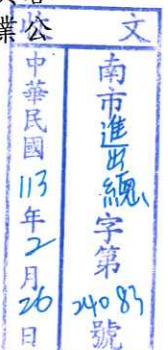 業公
收文
南市進出總字第24083號
中華民國113年2月26日